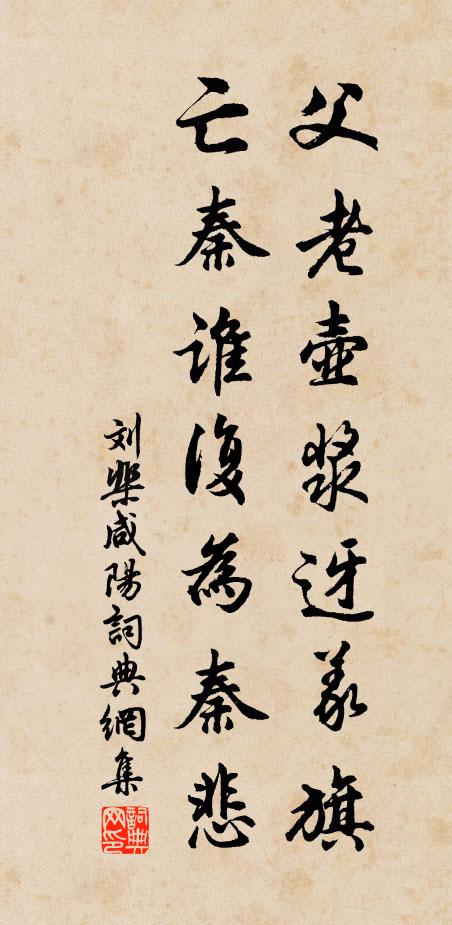 父老壺漿迓義旗
亡秦誰復為秦悲
刘槩咸陽詞典網集
詞典网印